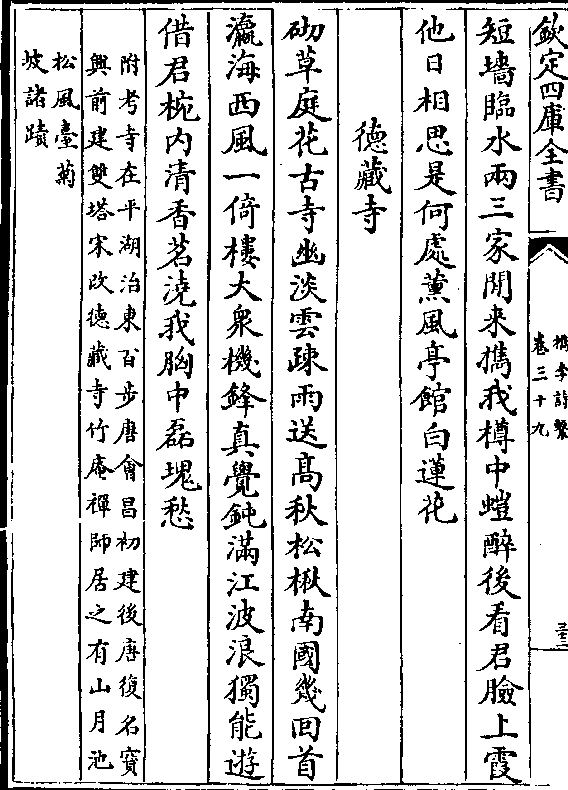 欽定四庫全書
檇李詩繫
卷三十九
三三
短墻臨水兩三家閒來攜我樽中螘醉後看君臉上霞
他日相思是何處薰風亭館白蓮花
德藏寺
砌草庭花古寺幽淡雲疎雨送髙秋松楸南國幾回首
瀛海西風一倚樓大衆機鋒真覺鈍滿江波浪獨能遊
借君椀内清香茗澆我胸中磊塊愁
附考寺在平湖治東百步唐會昌初建後唐復名寳
興前建雙塔宋改德藏寺竹庵禪師居之有山月池
松風臺菊
坡諸蹟